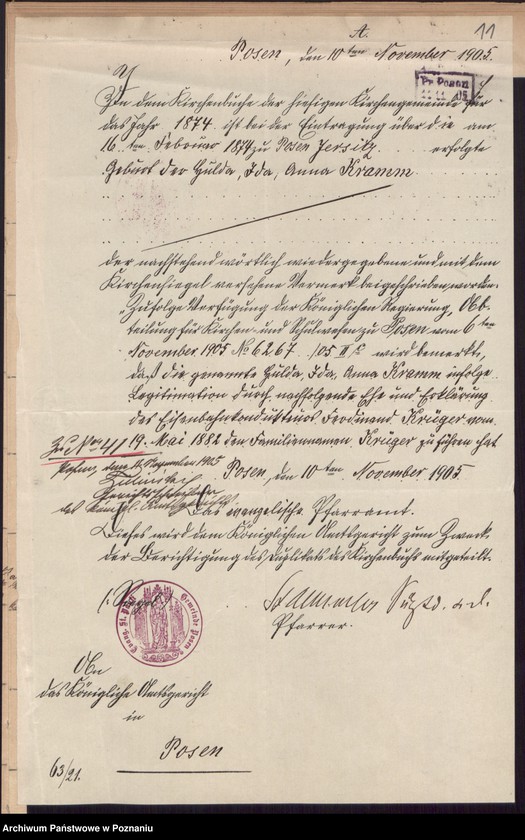 11
A.
Posen, den 10ten November 1905.
Pr. Posen
11.11.05
In dem Kirchenbuche der hiesigen Kirchengemeinde für
das Jahr 1874 ist bei der Eintragung über die am
16.ten Februar 1874 zu Posen Jersitz erfolgte
Geburt der Hulda, Ida, Anna Kramm
der nachstehend wörtlich wiedergegebene und mit dem
Kirchensiegel versehene Vermerk beigeschrieben worden:
"Zufolge Verfügung der Königlichen Regierung, Ab-
teilung für Kirchen- und Schulwesen zu Posen vom 6ten
November 1905 No 6267/05 II wird bemerkt,
daß die genannte Hulda, Ida, Anna Kramm infolge
Legitimation durch nachfolgende Ehe und Erklärung
des Eisenbahnkondukteurs Ferdinand Krüger vom
19. Mai 1882 den Familiennamen Krüger zu führen hat
Zu No 41
Posen, den 1905
Gerichtsschreiber
des Königl. Amtsgerichts
Posen, den 10ten November 1905.
Das evangelische Pfarramt.
Dieses wird dem Königlichen Amtsgericht zum Zweck
der Berichtigung des Duplikats des Kirchenbuchs mitgeteilt.
Evang. St. Gemeinde Posen
Pfarrer.
An
das Königliche Amtsgericht
in
Posen
63/21.
Archiwum Państwowe w Poznaniu